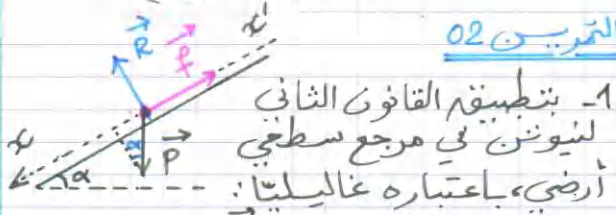 التمرين 02
1- بتطبيق القانون الثاني
لنيوتن في مرجع سطحي
أرضي، باعتباره غاليليًّا:
R
f
x'
x
α
P
α